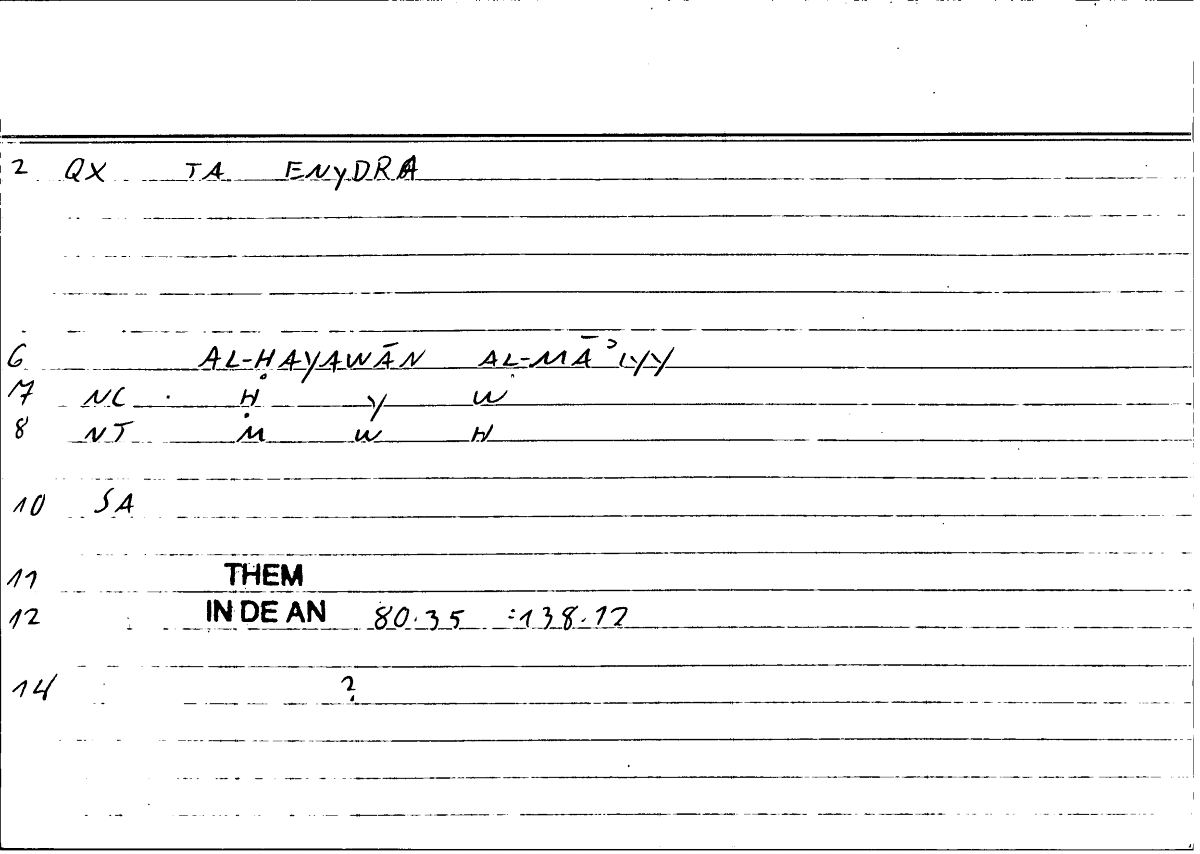 2 QX TA ENyDRA
6 AL-ḤAYAWĀN AL-MĀʾIYY
7 NC Ḥ Y W
8 NT M W H
10 SA
11 THEM
12 IN DE AN 80.35 :138.12
14 ?